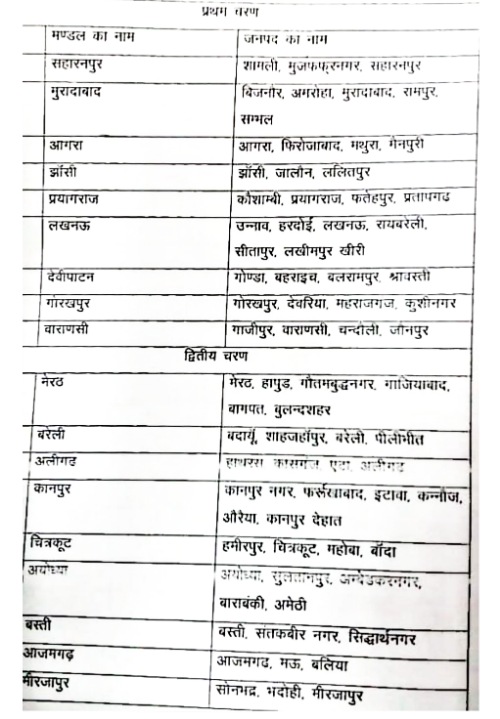 प्रथम चरण
मण्डल का नाम जनपद का नाम
सहारनपुर शामली, मुजफफरनगर, सहारनपुर
मुरादाबाद बिजनौर, अमरोहा, मुरादाबाद, रामपुर,
सम्भल
आगरा आगरा, फिरोजाबाद, मथुरा, मैनपुरी
झॉसी झॉसी, जालौन, ललितपुर
प्रयागराज कौशाम्बी, प्रयागराज, फतेहपुर, प्रतापगढ
लखनऊ उन्नाव, हरदोई, लखनऊ, रायबरेली,
सीतापुर, लखीमपुर खीरी
देवीपाटन गोण्डा, बहराइच, बलरामपुर, श्रावस्ती
गोरखपुर गोरखपुर, देवरिया, महराजगंज, कुशीनगर
वाराणसी गाजीपुर, वाराणसी, चन्दौली, जौनपुर
द्वितीय चरण
मेरठ मेरठ, हापुड, गौतमबुद्धनगर, गाजियाबाद,
बागपत, बुलन्दशहर
बरेली बदायूँ, शाहजहॉपुर, बरेली, पीलीभीत
अलीगढ हाथरस कासगंज, एटा, अलीगढ
कानपुर कानपुर नगर, फर्रुखाबाद, इटावा, कन्नौज,
औरैया, कानपुर देहात
चित्रकूट हमीरपुर, चित्रकूट, महोबा, बॉदा
अयोध्या अयोध्या, सुलतानपुर, अम्बेडकरनगर,
बाराबंकी, अमेठी
बस्ती बस्ती, संतकबीर नगर, सिद्धार्थनगर
आजमगढ़ आजमगढ, मऊ, बलिया
मीरजापुर सोनभद्र, भदोही, मीरजापुर